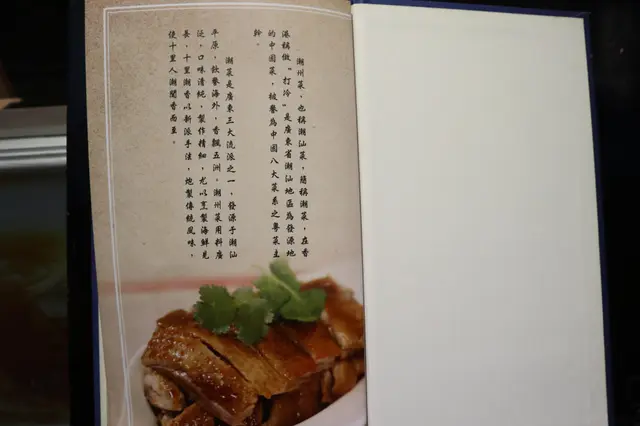 潮州菜，也稱潮汕菜，簡稱潮菜，在香
港稱做“打冷”是廣東省潮汕地區為發源地
的中國菜，被譽為中國八大菜系之粵菜主
幹。
潮菜是廣東三大流派之一，發源于潮汕
平原，飲譽海外，香飄五洲，潮州菜用料廣
泛，口味清純，製作精細，尤以烹製海鮮見
長，十里潮香以新派手法，炮製傳統風味，
使十里人潮聞香而至。